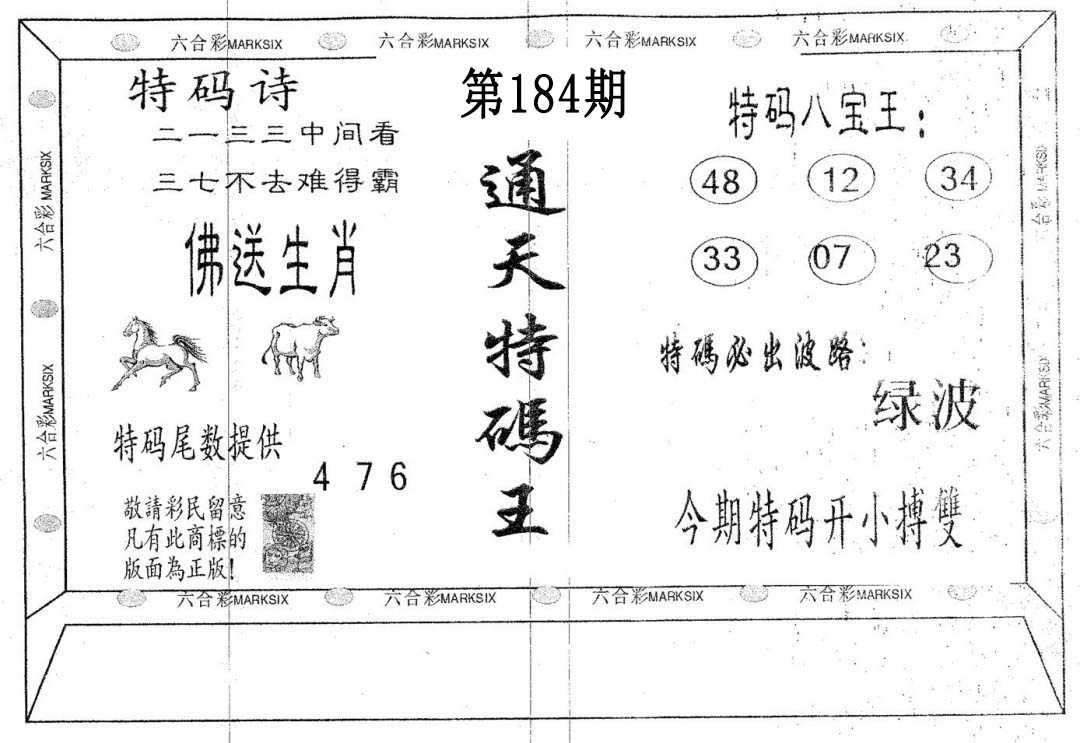 六合彩MARKSIX 六合彩MARKSIX 六合彩MARKSIX 六合彩MARKSIX
第184期
特码诗
二一三三中间看
三七不去难得霸
佛送生肖
特码尾数提供
4 7 6
敬請彩民留意
凡有此商標的
版面為正版!
通天特碼王
特码八宝王:
48 12 34
33 07 23
特碼必出波路:
绿波
今期特码开小搏雙
六合彩MARKSIX
六合彩MARKSIX
六合彩MARKSIX
六合彩MARKSIX
六合彩MARKSIX 六合彩MARKSIX 六合彩MARKSIX 六合彩MARKSIX